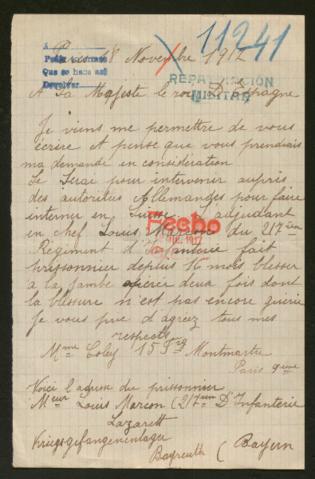 11241
Paris 18 Novembre 1917
REPATRIACIÓN
MILITAR
A Sa Majesté le roi D'Espagne
Je viens me permettre de vous
écrire et pense que vous prendriez
ma demande en considération
Ce serai pour intervenir auprès
des autorités Allemandes pour faire
interner en Suisse adjudant
Fecho
1917
en chef Louis Marcon du 217ème
Régiment d'Infanterie fait
prissonnier depuis mois blesser
a la jambe opérer deux fois dont
la blessure n'est pas encore guérie
Je vous prie d'agreez tous mes
respects
Mme Coley 15 Fg Montmartre
Paris 9eme
Voici l'adresse du prissonnier
Meur Louis Marcon (217ème D'Infanterie
Lazarett
Kriegsgefangenenlager
Bayreuth ( Bayern